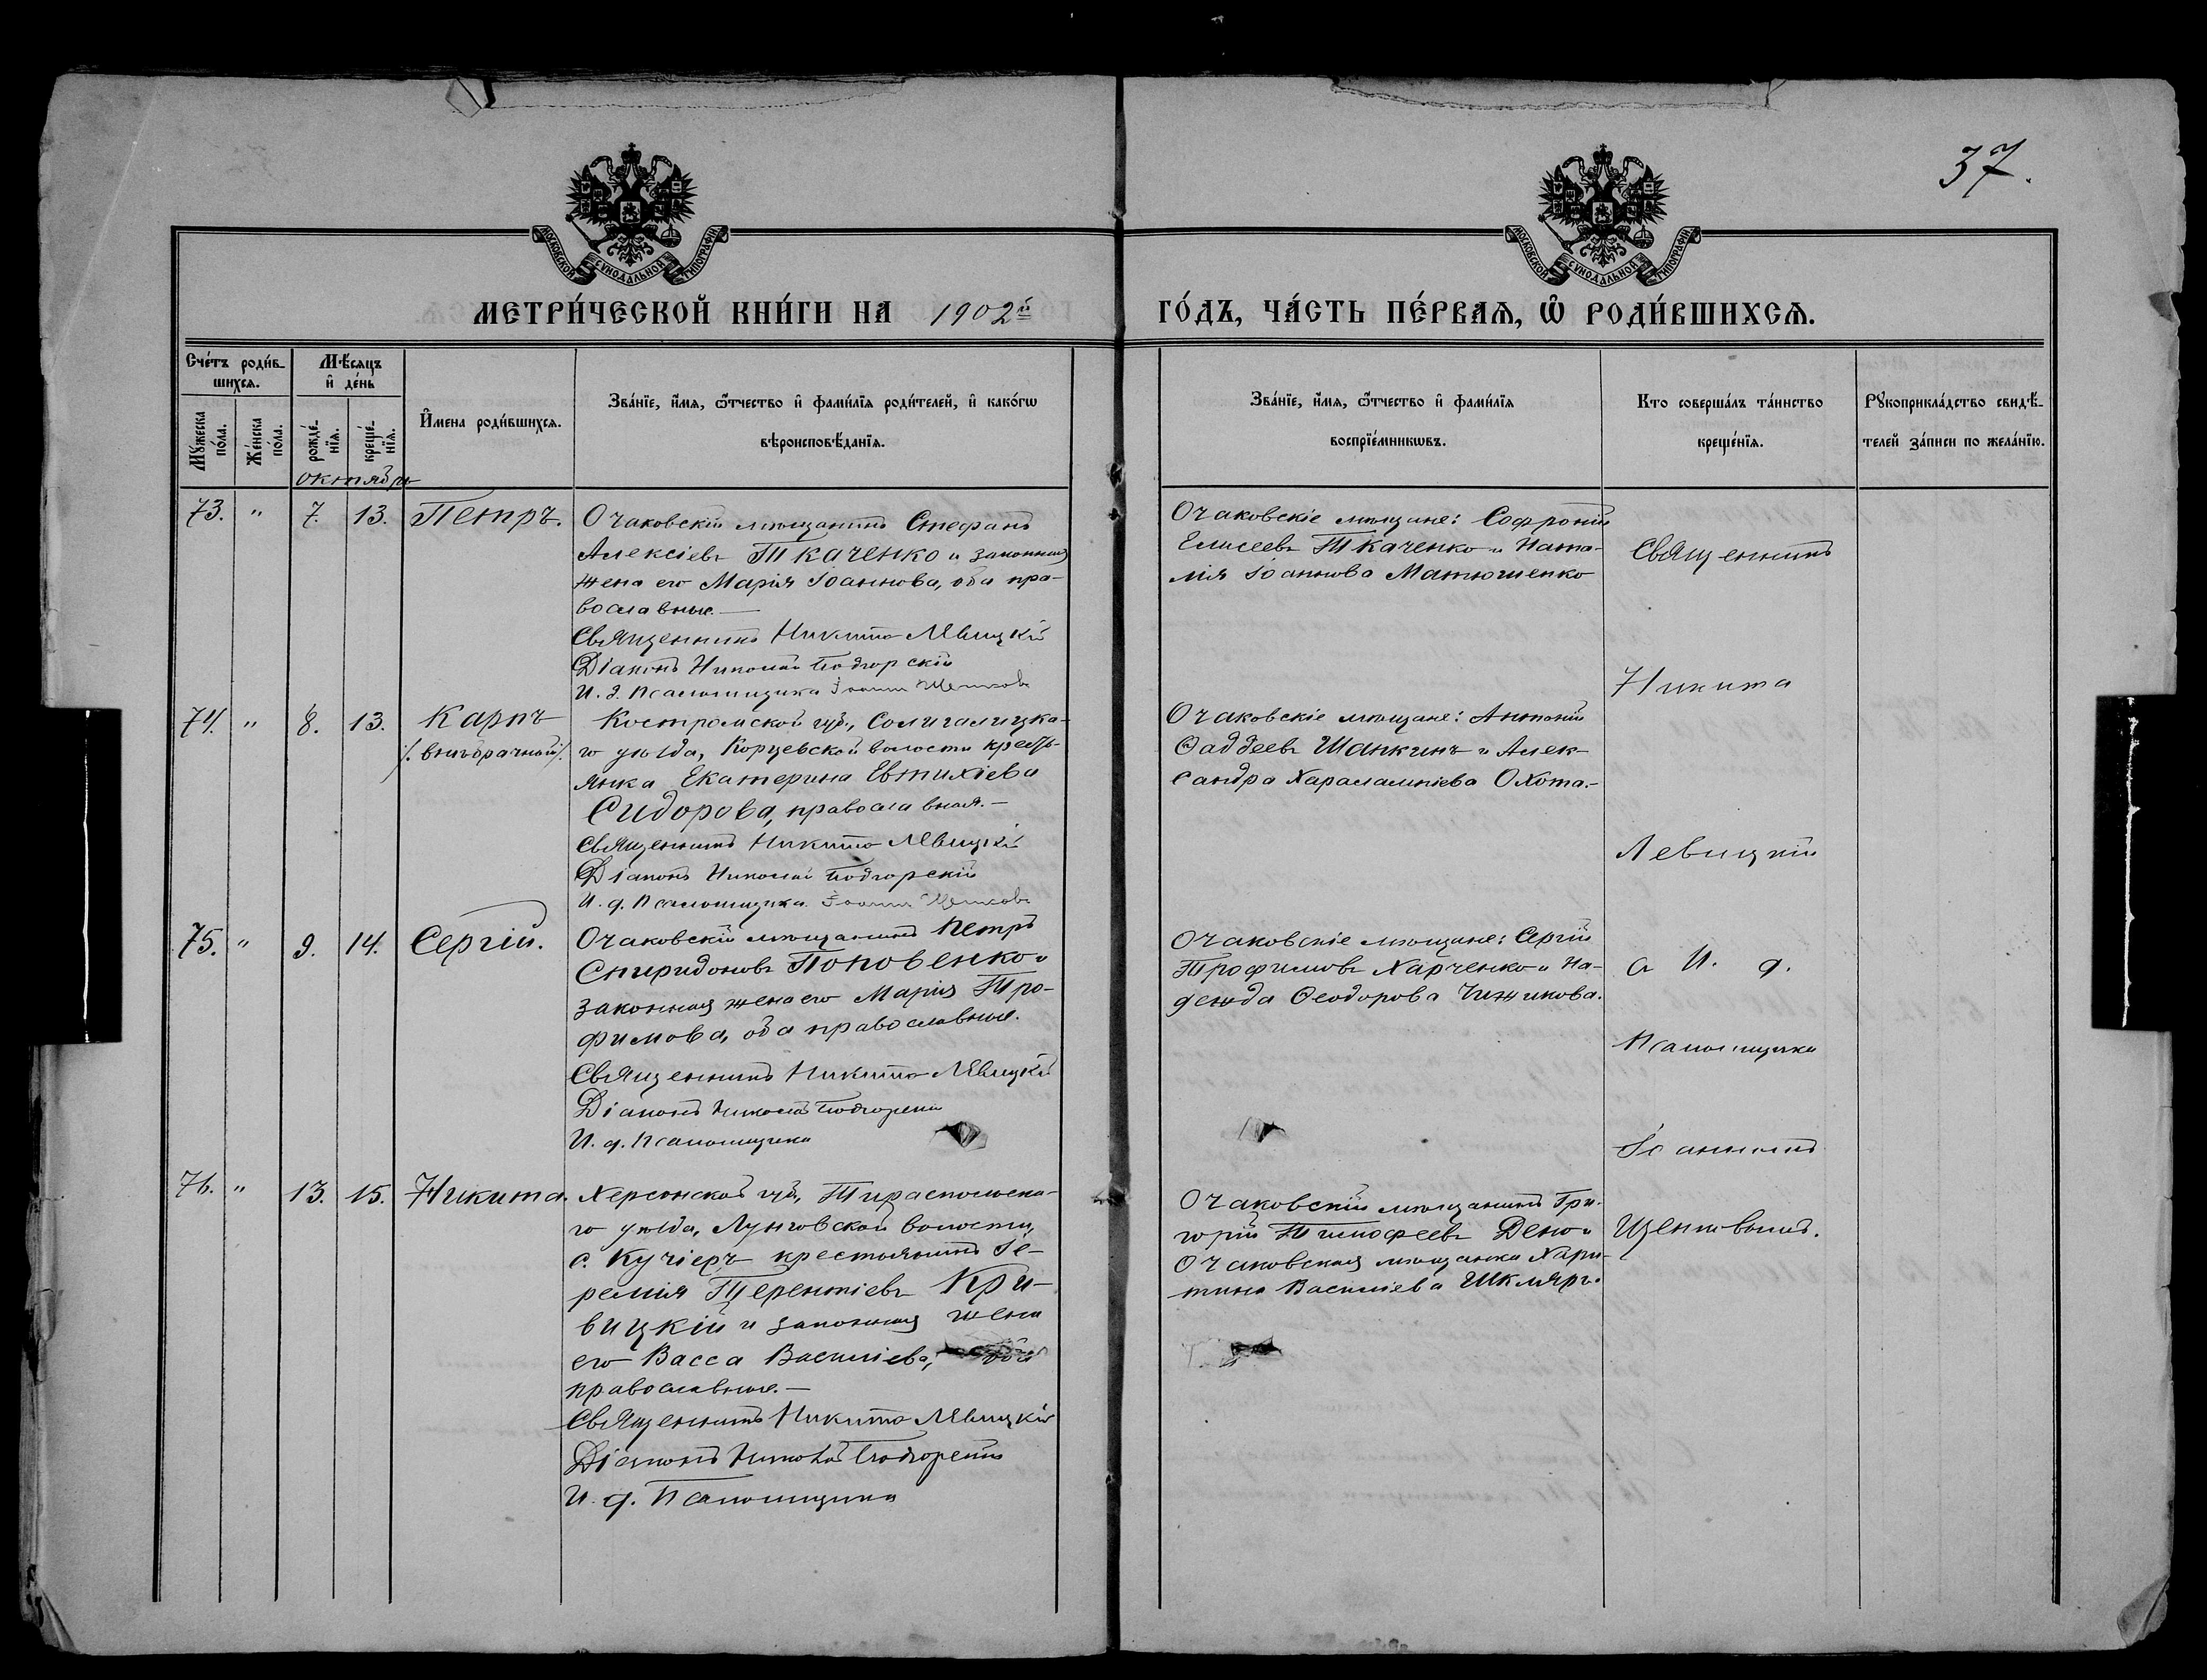 37.
МОСКОВСКОЙ СѴНОДАЛЬНОЙ ТИПОГРАФІИ
МОСКОВСКОЙ СѴНОДАЛЬНОЙ ТИПОГРАФІИ
МЕТРИ́ЧЕСКОЙ КНИ́ГИ НА 1902й
ГО́ДЪ, ЧА́СТЬ ПЕ́РВАѦ, Ѽ РОДИ́ВШИХСѦ.
Сче́тъ роди́в-
шихсѧ.
Мѣ́сѧцъ
и҆ де́нь
Мꙋжеска по́ла.
Же́нска по́ла.
рожде́-
нїѧ.
креще́-
нїѧ.
И҆мена роди́вшихсѧ.
Зва́нїе, и҆́мѧ, ѻ҆́тчество и҆ фами́лїѧ роди́телей, и҆ како́гѡ
вѣроисповѣ́данїѧ.
Зва́нїе, и҆́мѧ, ѻ҆́тчество и҆ фами́лїѧ
воспрїе́мникѡвъ.
Кто соверша́лъ та́инство
креще́нїѧ.
Рꙋкоприкла́дство свидѣ́-
телей за́писи по жела́нїю.
октябрь
73. " 7. 13. Петръ.
Очаковскій мѣщанинъ Стефанъ
Алексіевъ Ткаченко и законная
жена его Марія Іоаннова, оба пра-
вославные.—
Священникъ Никита Левицкій
Діаконъ Николай Подгорскій
И. д. Псаломщика Іоаннъ Щенковъ
Очаковскіе мѣщане: Софроній
Елисеевъ Ткаченко и Ната-
лія Іоаннова Матюшенко
74. " 8. 13. Карпъ
/. внѣбрачный/.
Костромской губ., Солигалицка-
го уѣзда, Корцевской волости кресть-
янка Екатерина Евтихіева
Сидорова, православная.—
Священникъ Никита Левицкій
Діаконъ Николай Подгорскій
И. д. Псаломщика Іоаннъ Щенковъ
Очаковскіе мѣщане: Антоній
Ѳаддеевъ Шапкинъ и Алек-
сандра Харалампіева Охота.-
75. " 9. 14. Сергій.
Очаковскій мѣщанинъ Петръ
Спиридоновъ Поповенко и
законная жена его Марія Тро-
фимова, оба православные.
Священникъ Никита Левицкій
Діаконъ Николай Подгорскій
И. д. Псаломщика
Очаковскіе мѣщане: Сергій
Трофимовъ Харченко и На-
дежда Ѳеодорова Чижикова.
76. " 13. 15. Никита.
Херсонской губ., Тираспольска-
го уѣзда, Лунговской волости,
с. Кучіеръ крестьянинъ Іе-
ремія Терентіевъ Кри-
вицкій и законная жена
его Васса Василіева, оба
православные.—
Священникъ Никита Левицкій
Діаконъ Николай Подгорскій
И. д. Псаломщика
Очаковскій мѣщанинъ Гри-
горій Тимофеевъ Дено и
Очаковская мѣщанка Хари-
тина Василіева Шкляръ.
Священникъ
Никита
Левицкій
с И. д.
Псаломщика
Іоанномъ
Щенковымъ.